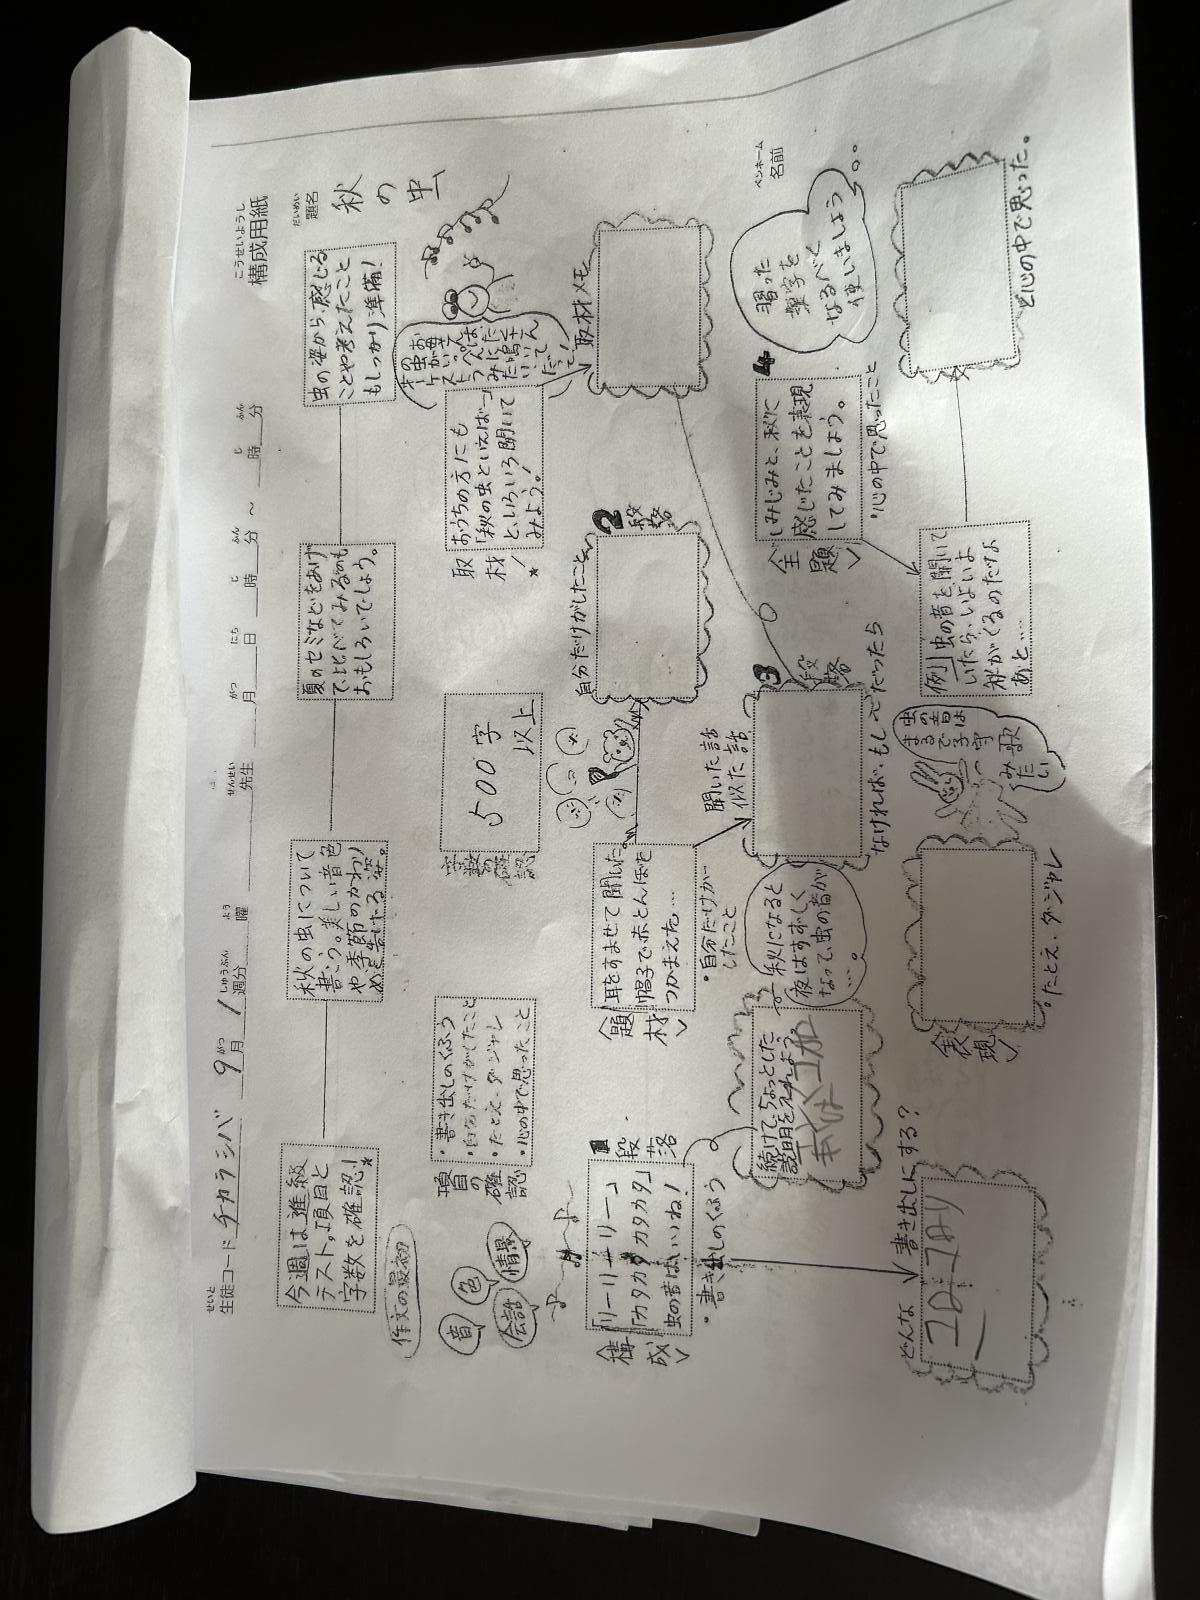 こうせいようし
構成用紙
せいと
生徒コード チカラシバ
9月1週分
がつ
しゅうぶん
よう
曜
せんせい
先生
がつ
月
にち
日
じ
時
ふん
分
～
じ
時
ふん
分
だいめい
題名
秋の虫
ペンネーム
名前
今週は進級
テスト。項目と
字数を確認！
秋の虫について
書こう。美しい音色
や季節のかわり
めを告げる姿。
夏のセミなどをあげ
て、比べてみるのも
おもしろいでしょう。
虫の姿から、感じる
ことや考えたこと
もしっかり準備！
作文の最初
音
色
会話
情景
項目の確認
・書き出しのくふう
・自分だけがしたこと
・たとえ・ダジャレ
・心の中で思ったこと
字数の確認
500字
以上
取材！
おうちの方にも
「秋の虫といえば…」
といろいろ聞いて
みよう。
取材メモ
＜構成＞
「リーリーリー」
「カタカタカタカタ」
虫の音はいいね！
・書き出しのくふう
1段落
＜題材＞
耳をすませて聞いた
帽子で赤とんぼを
つかまえた…
・自分だけが
したこと
自分だけがしたこと
2段落
続けて、ちょっとした
説明を入れよう
秋になると
夜はすずしく
なって、虫の音が
…。
聞いた話
似た話
3段落
なければ、もし～だったら
＜主題＞
しみじみと、秋に
感じたことを表現
してみましょう。
・心の中で思ったこと
4
習った
漢字を
なるべく
使いましょう
どんな書き出しにする？
＜表現＞
・たとえ、ダジャレ
虫の音は
まるで
子守歌
みたい
例 虫の音を聞いて
いたら、いよいよ
秋がくるのだなあ
と…。
と心の中で思った。